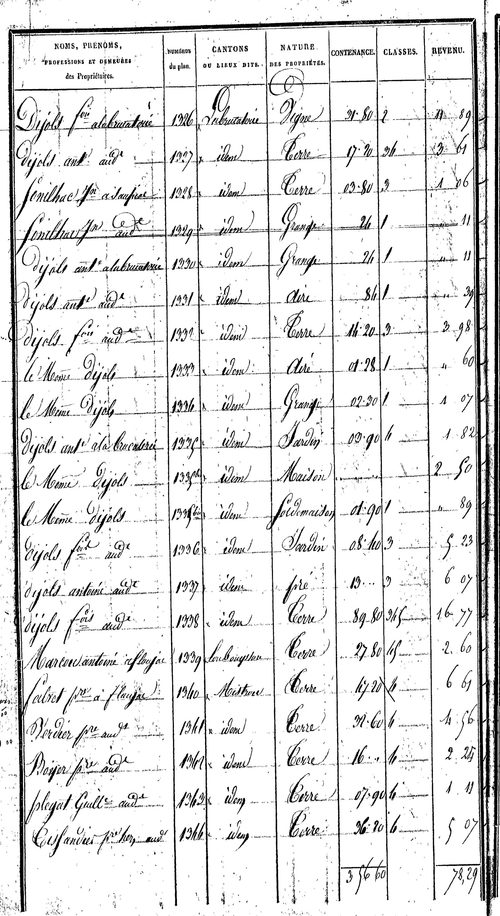 NOMS, PRÉNOMS, PROFESSIONS ET DEMEURES des Propriétaires. NUMÉROS du plan. CANTONS OU LIEUX DITS. NATURE DES PROPRIÉTÉS. CONTENANCE. CLASSES. REVENU.
Dijols fois alabruntarie 1326 Labruntarie Vigne 31·80 2 11 89
dijols ant. aud. 1327 idem Terre 17·20 36 3 61
1328 idem Terre 03·80 3 1 06
aud. 1329 idem Grange 26 1 " 11
dijols ant. alabruntarie 1330 idem Grange 26 1 " 11
dijols ant. aud. 1331 idem aire 86 1 " 39
dijols fois aud. 1332 idem Terre 14·20 3 3 98
le Même dijols 1333 idem airé 01·28 1 " 60
le Même dijols 1334 idem Grange 02·30 1 1 07
dijols ant. 1335 idem Jardin 03·90 4 1 82
le Même dijols idem Maison 2 50
le Même dijols idem Sol de maison 01·90 1 " 89
dijols fois aud. 1336 idem Jardin 08·40 3 5 23
dijols antoine aud. 1337 idem pré 13·· 3 6 07
dijols fois aud. 1338 idem Terre 89·80 345 16 77
antoine 1339 Terre 27·80 45 2 60
pre a 1340 Terre 47·20 4 6 61
Verdier pre aud. 1341 idem Terre 32·60 4 4 56
Boyer pre aud. 1342 idem Terre 16·· 4 2 24
plegat Guill. aud. 1343 idem Terre 07·90 4 1 11
pre aud. 1344 idem Terre 36·20 4 5 07
3 56 60 78,29